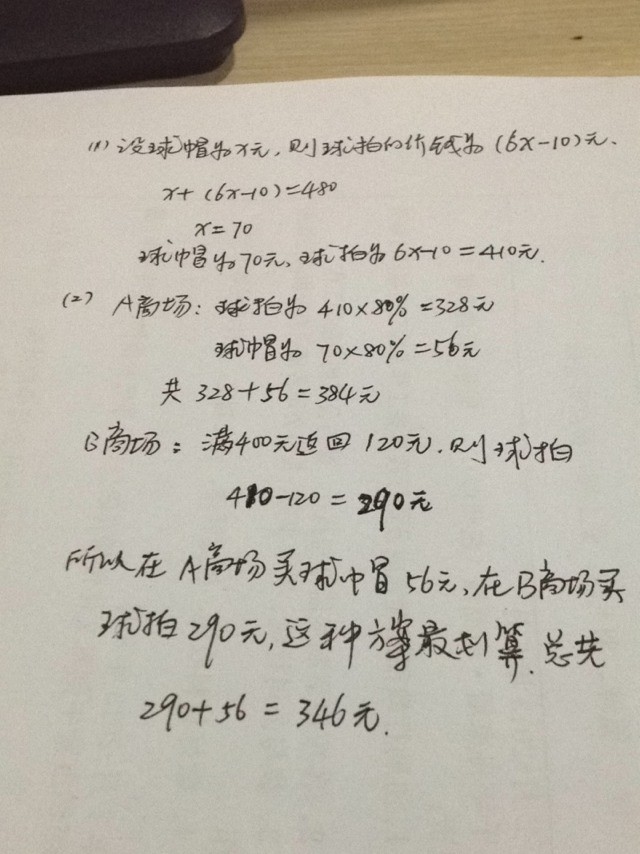 (1) 设球帽为x元,则球拍的价钱为(6x-10)元.
x+(6x-10)=480
x=70
球帽为70元,球拍为6x-10=410元.
(2) A商场:球拍为 410×80%=328元
球帽为 70×80%=56元
共 328+56=384元
B商场:满400元返回120元.则球拍
410-120=290元
所以在A商场买球帽56元,在B商场买
球拍290元,这种方案最划算.总共
290+56=346元.